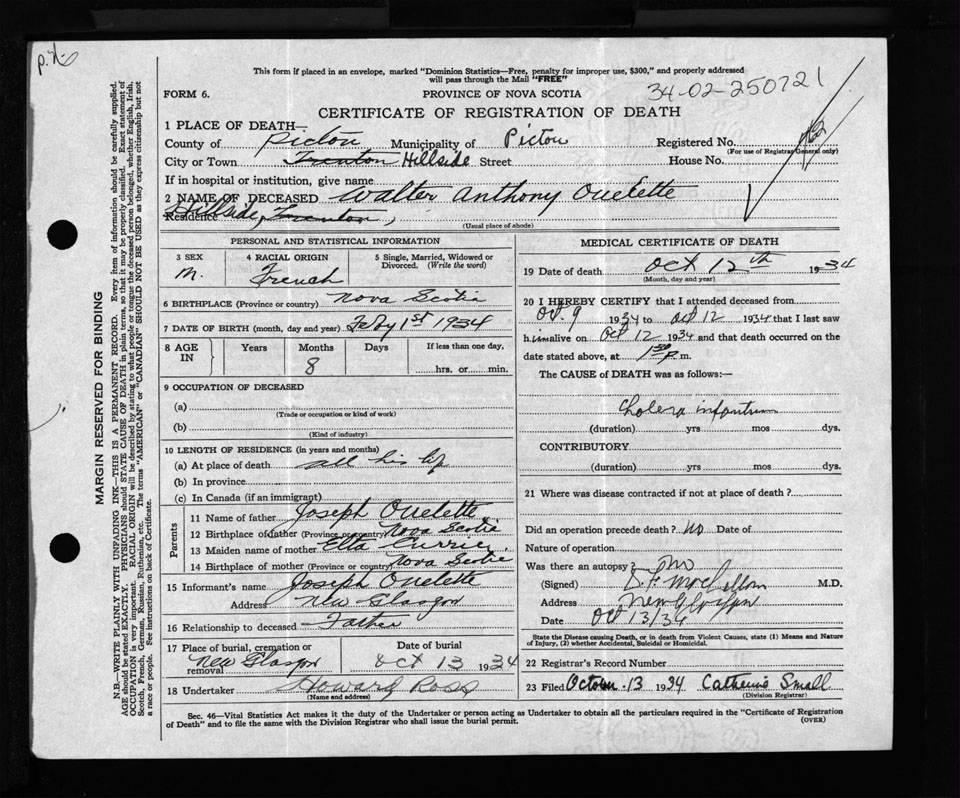 This form if placed in an envelope, marked "Dominion Statistics—Free, penalty for improper use, $300," and properly addressed
will pass through the Mail "FREE"
FORM 6.
PROVINCE OF NOVA SCOTIA
34-02-250721
CERTIFICATE OF REGISTRATION OF DEATH
1 PLACE OF DEATH—
County of Pictou Municipality of Pictou Registered No.
(For use of Registrar General only)
City or Town Trenton Hillside Street House No.
If in hospital or institution, give name
2 NAME OF DECEASED Walter Anthony Ouelette
Residence Hillside, Trenton,
(Usual place of abode)
PERSONAL AND STATISTICAL INFORMATION
3 SEX
M.
4 RACIAL ORIGIN
French
5 Single, Married, Widowed or
Divorced. (Write the word)
6 BIRTHPLACE (Province or country) Nova Scotia
7 DATE OF BIRTH (month, day and year) Feby 1st 1934
8 AGE IN
Years
Months
8
Days
If less than one day,
hrs. or min.
9 OCCUPATION OF DECEASED
(a)
(Trade or occupation or kind of work)
(b)
(Kind of industry)
10 LENGTH OF RESIDENCE (in years and months)
(a) At place of death all his life
(b) In province
(c) In Canada (if an immigrant)
Parents
11 Name of father Joseph Ouelette
12 Birthplace of father (Province or country) Nova Scotia
13 Maiden name of mother Etta Currie,
14 Birthplace of mother (Province or country) Nova Scotia
15 Informant's name Joseph Ouelette
Address New Glasgow
16 Relationship to deceased Father
17 Place of burial, cremation or
removal New Glasgow
Date of burial
Oct 13 1934
18 Undertaker Howard Ross
(Name and address)
MEDICAL CERTIFICATE OF DEATH
19 Date of death Oct 12th 1934
(Month, day and year)
20 I HEREBY CERTIFY that I attended deceased from
Oct. 9 1934 to Oct 12 1934 that I last saw
him alive on Oct 12 1934 and that death occurred on the
date stated above, at 1 30 p.m.
The CAUSE of DEATH was as follows:—
Cholera infantum
(duration) yrs mos dys.
CONTRIBUTORY
(duration) yrs mos dys.
21 Where was disease contracted if not at place of death?
Did an operation precede death? no Date of
Nature of operation
Was there an autopsy? no
(Signed) M.D.
Address New Glasgow
Date Oct 13/34
State the Disease causing Death, or in death from Violent Causes, state (1) Means and Nature
of Injury, (2) whether Accidental, Suicidal or Homicidal.
22 Registrar's Record Number
23 Filed October 13 1934 Catherine Small
(Division Registrar)
Sec. 46—Vital Statistics Act makes it the duty of the Undertaker or person acting as Undertaker to obtain all the particulars required in the "Certificate of Registration
of Death" and to file the same with the Division Registrar who shall issue the burial permit.
(OVER)
MARGIN RESERVED FOR BINDING
N.B.—WRITE PLAINLY WITH UNFADING INK—THIS IS A PERMANENT RECORD. Every item of information should be carefully supplied.
AGE should be stated EXACTLY. PHYSICIANS should STATE CAUSE OF DEATH in plain terms, so that it may be properly classified. Exact statement of
OCCUPATION is very important. RACIAL ORIGIN will be described by stating to what people or tongue the deceased person belonged, whether English, Irish,
Scotch, French, German, Russian, Ruthenian, etc. The terms "AMERICAN" or "CANADIAN" SHOULD NOT BE USED as they express citizenship but not
a race or people. See instructions on back of Certificate.